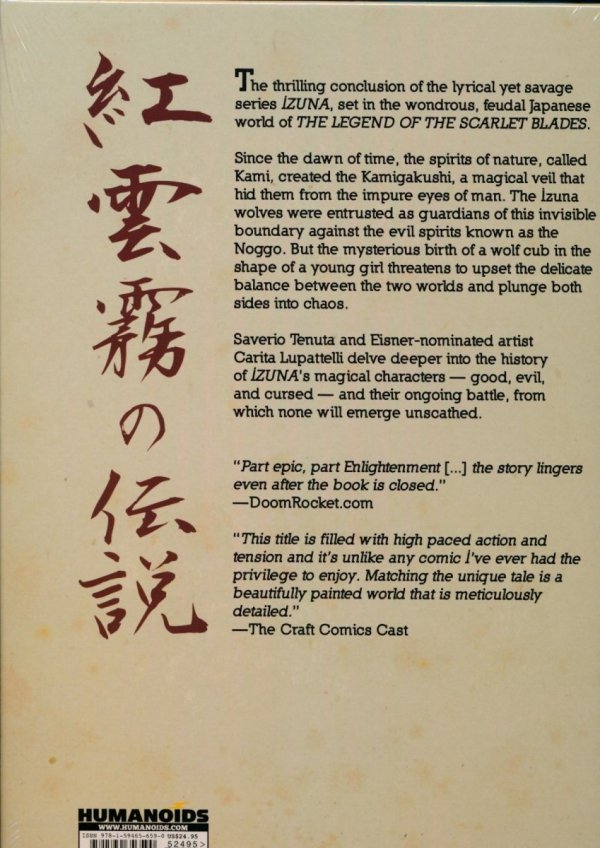 紅雲霧の伝説
The thrilling conclusion of the lyrical yet savage
series İZUNA, set in the wondrous, feudal Japanese
world of THE LEGEND OF THE SCARLET BLADES.
Since the dawn of time, the spirits of nature, called
Kami, created the Kamigakushi, a magical veil that
hid them from the impure eyes of man. The İzuna
wolves were entrusted as guardians of this invisible
boundary against the evil spirits known as the
Noggo. But the mysterious birth of a wolf cub in the
shape of a young girl threatens to upset the delicate
balance between the two worlds and plunge both
sides into chaos.
Saverio Tenuta and Eisner-nominated artist
Carita Lupattelli delve deeper into the history
of İZUNA's magical characters — good, evil,
and cursed — and their ongoing battle, from
which none will emerge unscathed.
"Part epic, part Enlightenment [...] the story lingers
even after the book is closed."
—DoomRocket.com
"This title is filled with high paced action and
tension and it's unlike any comic İ've ever had the
privilege to enjoy. Matching the unique tale is a
beautifully painted world that is meticulously
detailed."
—The Craft Comics Cast
HUMANOIDS
WWW.HUMANOIDS.COM
ISBN 978-1-59465-659-0 US$24.95
52495>